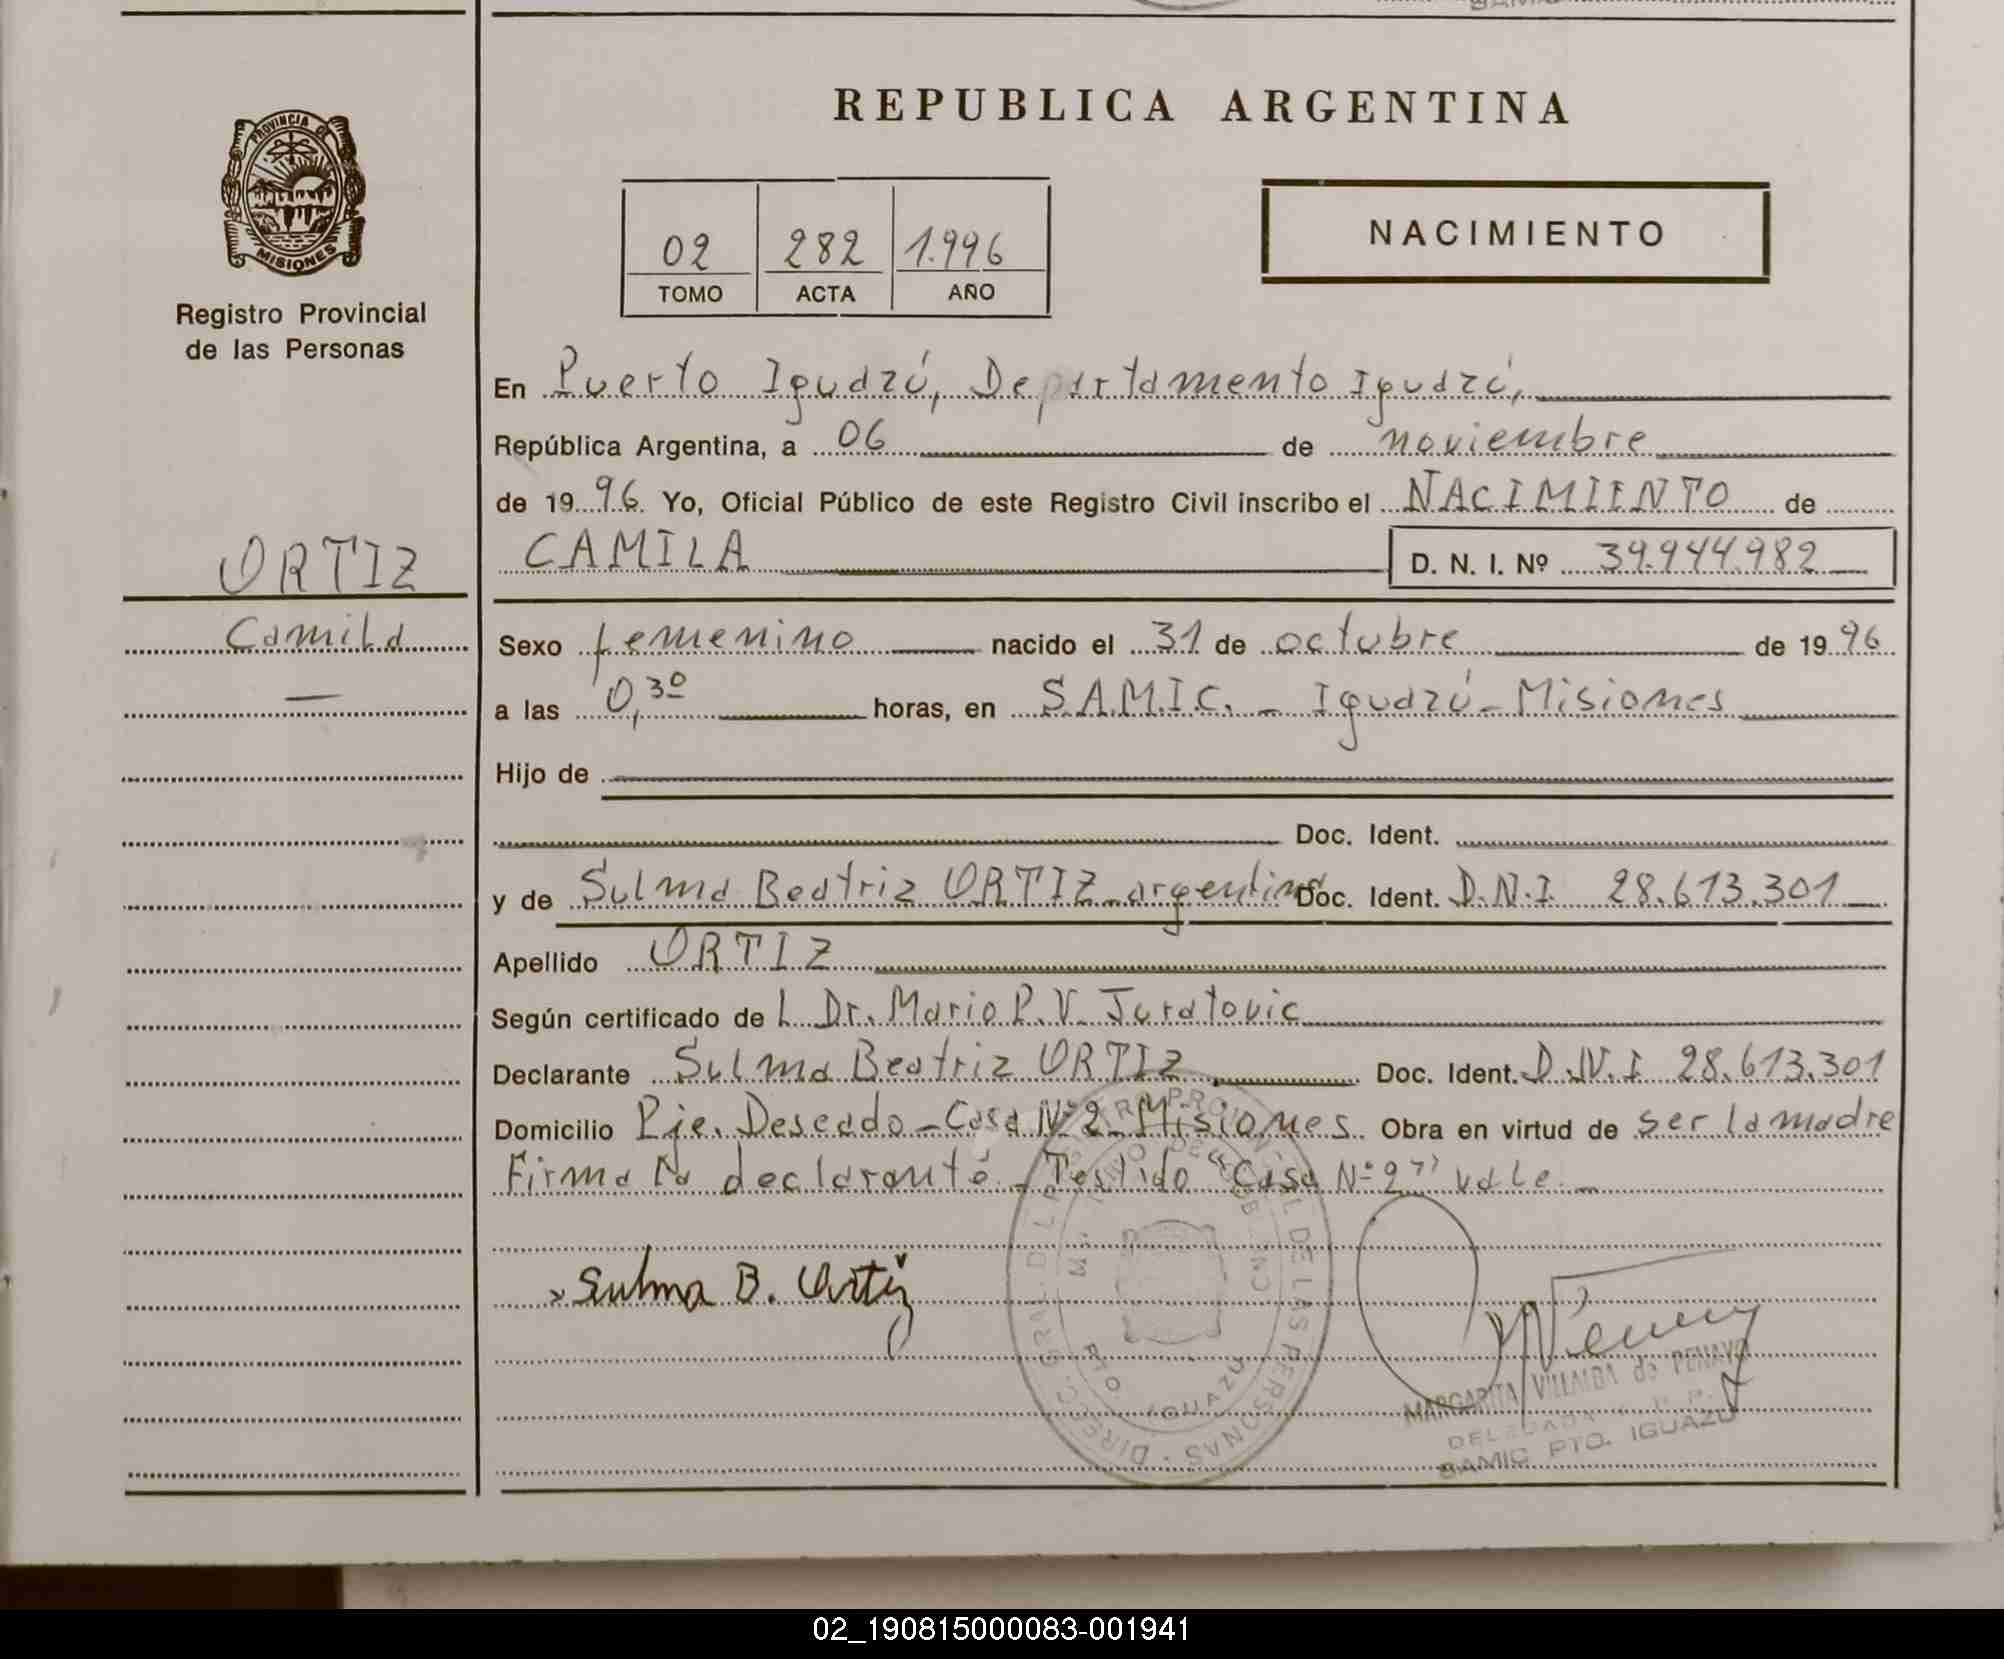 REPUBLICA ARGENTINA
PROVINCIA DE
MISIONES
Registro Provincial
de las Personas
02 282 1.996
TOMO ACTA AÑO
NACIMIENTO
En Puerto Iguazú, Departamento Iguazú,
República Argentina, a 06 de noviembre
de 1996. Yo, Oficial Público de este Registro Civil inscribo el NACIMIENTO de
ORTIZ
CAMILA D. N. I. Nº 39.944.982
Camila
Sexo femenino nacido el 31 de octubre de 1996
a las 0,30 horas, en S.A.M.I.C. - Iguazú - Misiones
Hijo de
Doc. Ident.
y de Sulma Beatriz ORTIZ - argentina Doc. Ident. D.N.I 28.613.301
Apellido ORTIZ
Según certificado de L Dr. Mario P. V. Juratovic
Declarante Sulma Beatriz ORTIZ Doc. Ident. D.N.I 28.613.301
Domicilio Pje. Deseado - Casa Nº 2 - Misiones. Obra en virtud de ser la madre
Firma la declarante - Testido "Casa Nº 2" vale. -
Sulma B. Ortiz
DE LAS PERSONAS
PTO. IGUAZU
MARGARITA VILLALBA de PENAYO
DELEGADA
SAMIC PTO. IGUAZU
02_190815000083-001941